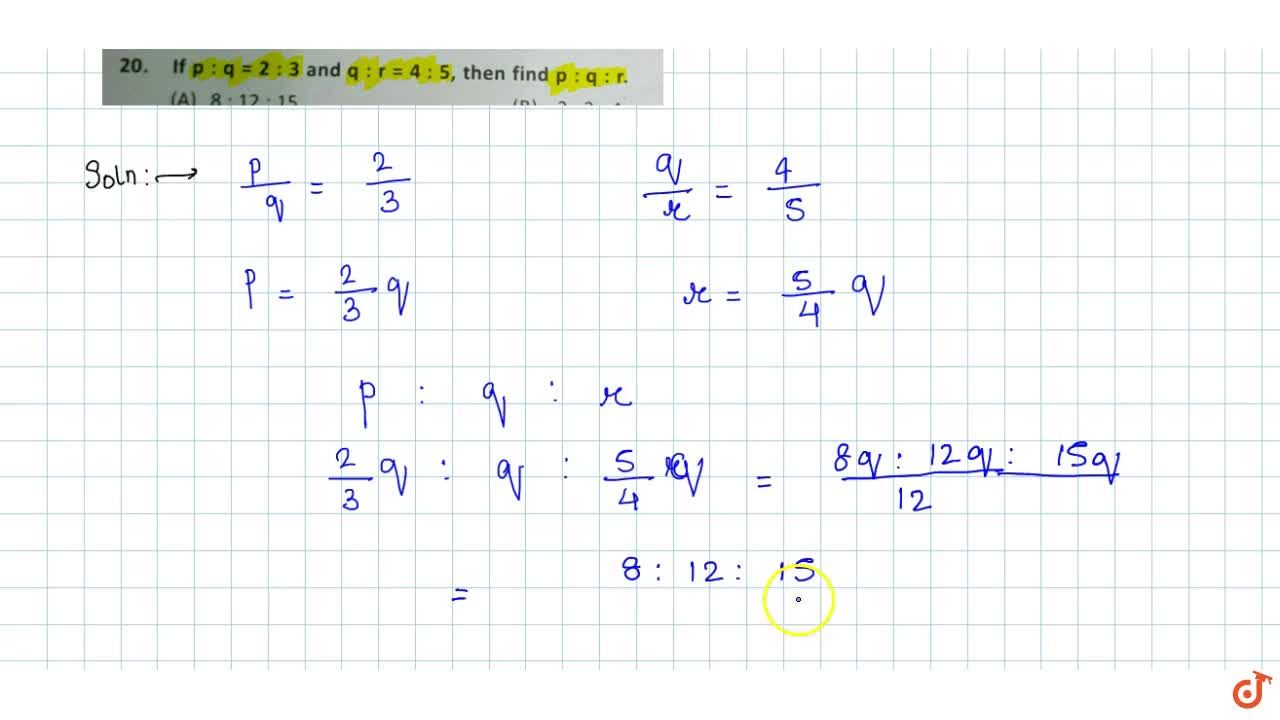 20. If p : q = 2 : 3 and q : r = 4 : 5, then find p : q : r.
(A) 8 : 12 : 15
Soln: → p/q = 2/3 q/r = 4/5
p = 2/3 q r = 5/4 q
p : q : r
2/3 q : q : 5/4 q = 8q : 12q : 15q / 12
= 8 : 12 : 15